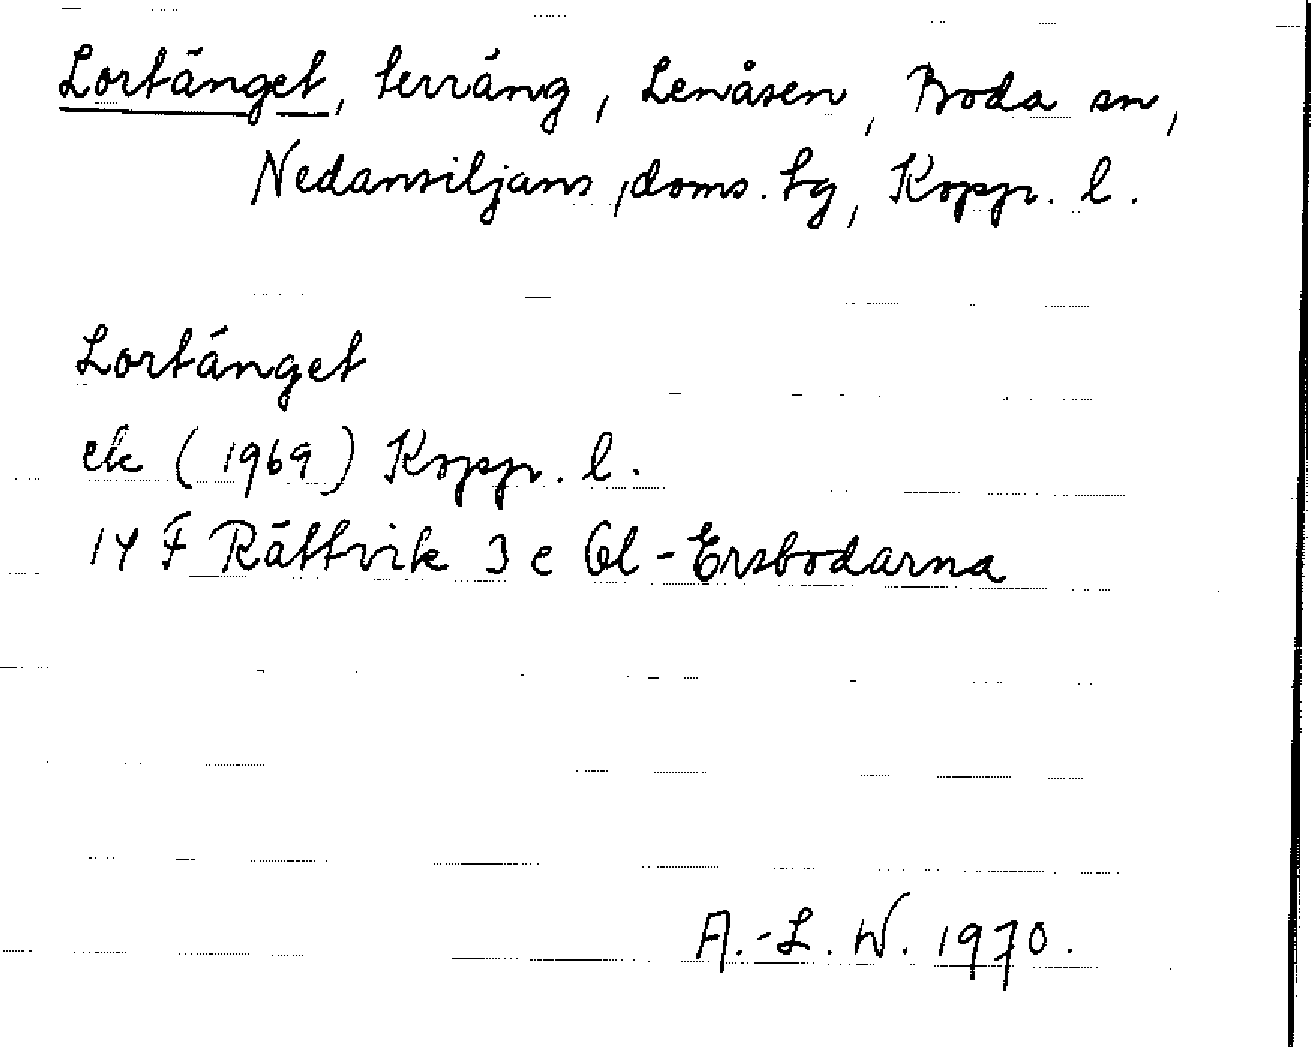 Lortänget, terräng, Lenåsen, Boda sn,
Nedansiljans, doms. tg, Kopp. l.
Lortänget
ek (1969) Kopp. l.
14 F Rättvik 3 e Ol-Ersbodarna
A.-L. W. 1970.